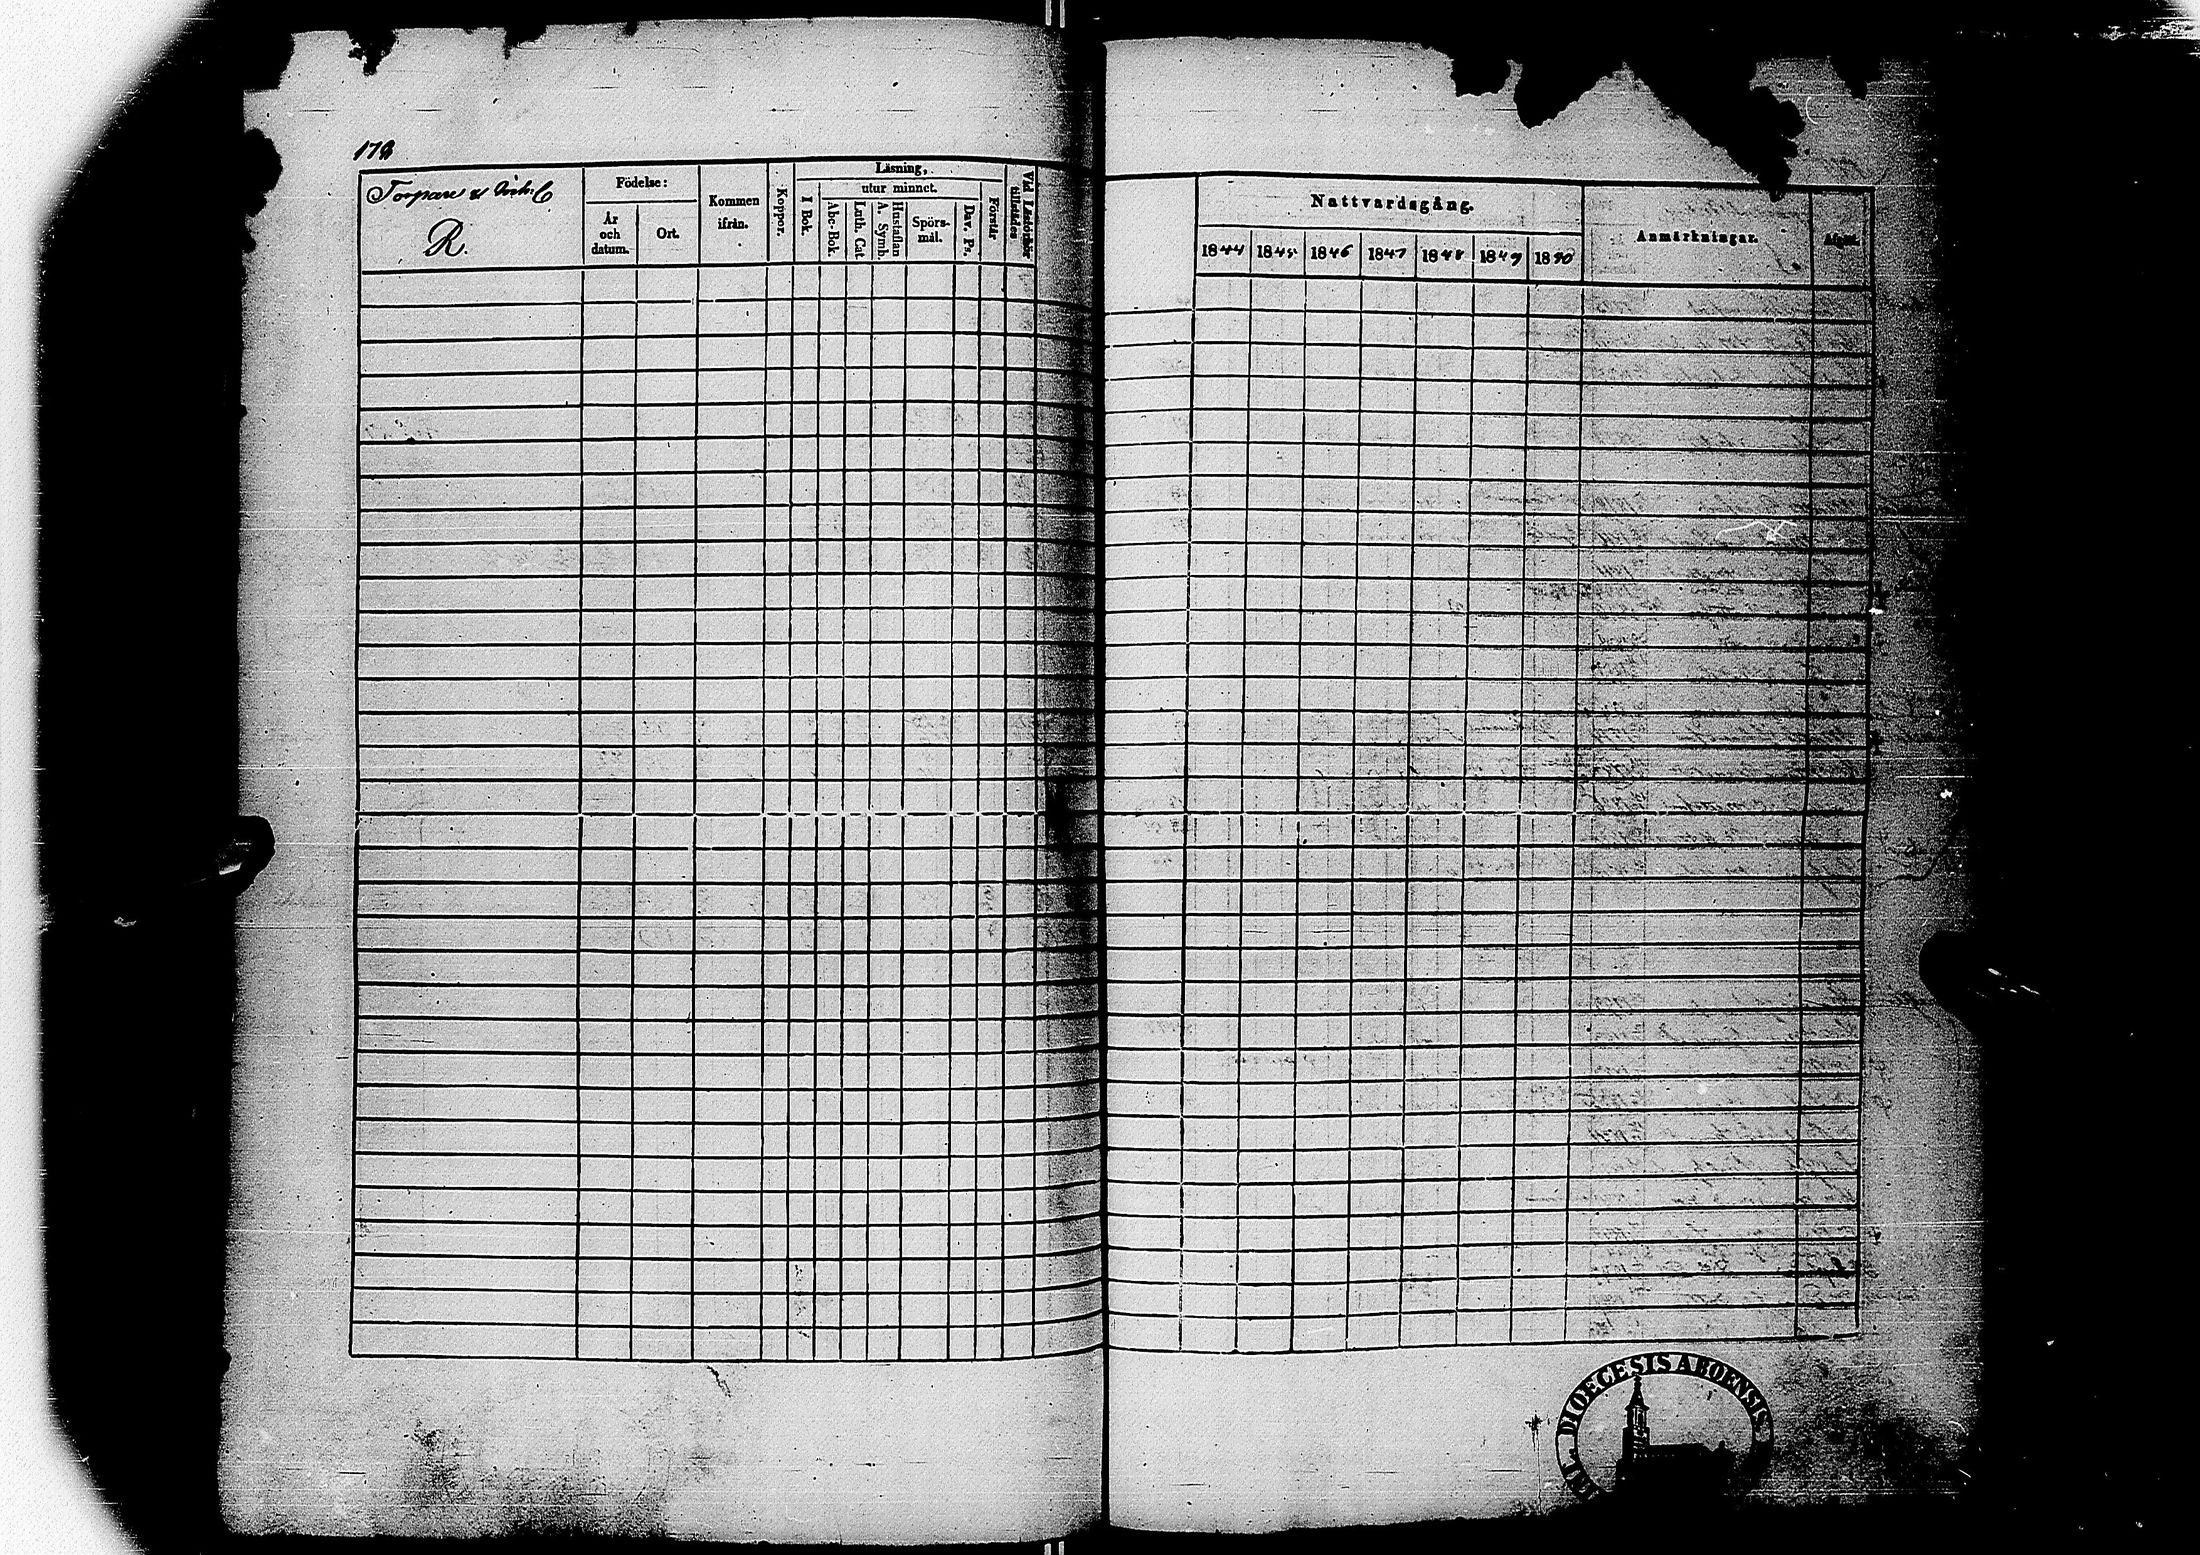 178
Torpare &
R.
Födelse:
År
och
datum.
Ort.
Kommen
ifrån.
Koppor.
Läsning,
utur minnet.
I Bok.
Abc-Bok.
Luth. Cat.
A. Symb.
Hustaflan
Spörs-
mål.
Dav. Ps.
Förstår
Vid Läseförhör
tillstädes
Nattvardsgång.
1844 1845. 1846 1847 1848 1849 1850
Anmärkningar.
Afgått.
DIOECESIS ABOENSIS